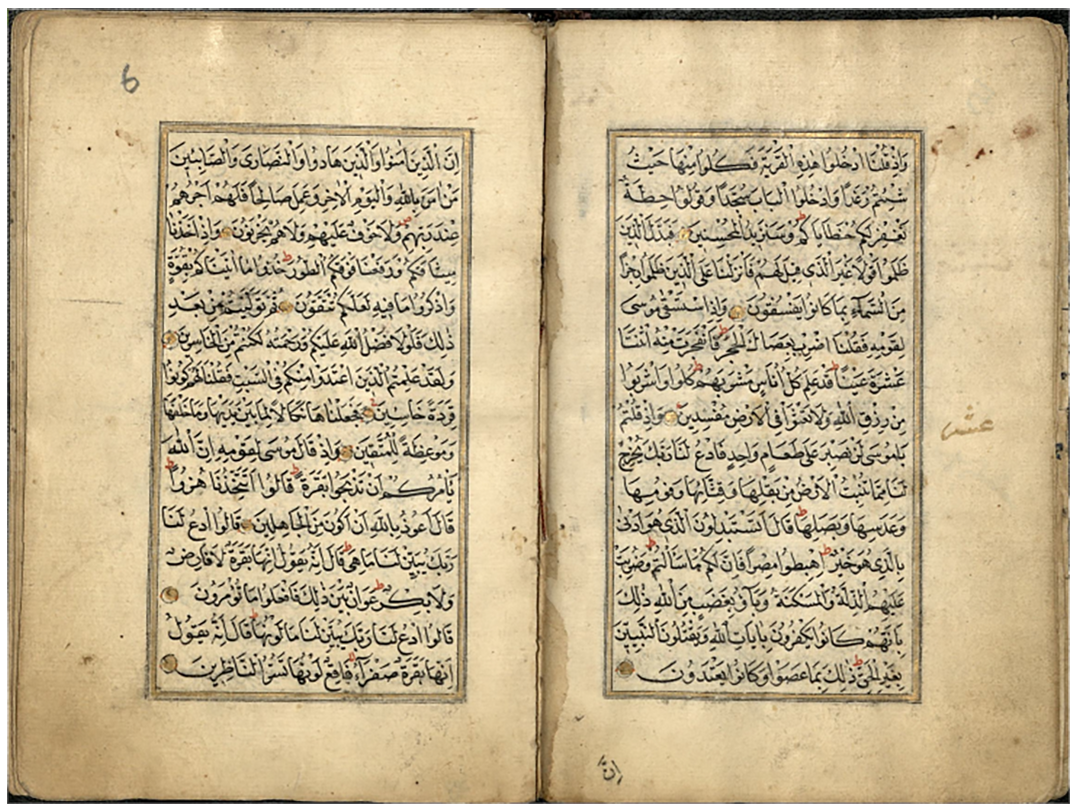 وَاِذْ قُلْنَا ادْخُلُوا هٰذِهِ الْقَرْيَةَ فَكُلُوا مِنْهَا حَيْثُ
شِئْتُمْ رَغَدًا وَادْخُلُوا الْبَابَ سُجَّدًا وَقُولُوا حِطَّةٌ
نَغْفِرْ لَكُمْ خَطَايَاكُمْ وَسَنَزِيدُ الْمُحْسِنِينَ فَبَدَّلَ الَّذِينَ
ظَلَمُوا قَوْلًا غَيْرَ الَّذِي قِيلَ لَهُمْ فَاَنْزَلْنَا عَلَى الَّذِينَ ظَلَمُوا رِجْزًا
مِنَ السَّمَآءِ بِمَا كَانُوا يَفْسُقُونَ وَاِذِ اسْتَسْقٰى مُوسَى
لِقَوْمِهِ فَقُلْنَا اضْرِبْ بِعَصَاكَ الْحَجَرَ فَانْفَجَرَتْ مِنْهُ اثْنَتَا
عَشْرَةَ عَيْنًا قَدْ عَلِمَ كُلُّ اُنَاسٍ مَشْرَبَهُمْ كُلُوا وَاشْرَبُوا
مِنْ رِزْقِ اللّٰهِ وَلَا تَعْثَوْا فِي الْاَرْضِ مُفْسِدِينَ وَاِذْ قُلْتُمْ
يَا مُوسَى لَنْ نَصْبِرَ عَلَى طَعَامٍ وَاحِدٍ فَادْعُ لَنَا رَبَّكَ يُخْرِجْ
لَنَا مِمَّا تُنْبِتُ الْاَرْضُ مِنْ بَقْلِهَا وَقِثَّائِهَا وَفُومِهَا
وَعَدَسِهَا وَبَصَلِهَا قَالَ اَتَسْتَبْدِلُونَ الَّذِي هُوَ اَدْنَى
بِالَّذِي هُوَ خَيْرٌ اِهْبِطُوا مِصْرًا فَاِنَّ لَكُمْ مَا سَاَلْتُمْ وَضُرِبَتْ
عَلَيْهِمُ الذِّلَّةُ وَالْمَسْكَنَةُ وَبَآؤُ بِغَضَبٍ مِنَ اللّٰهِ ذٰلِكَ
بِاَنَّهُمْ كَانُوا يَكْفُرُونَ بِاٰيَاتِ اللّٰهِ وَيَقْتُلُونَ النَّبِيِّينَ
بِغَيْرِ الْحَقِّ ذٰلِكَ بِمَا عَصَوْا وَكَانُوا يَعْتَدُونَ
عشر
اِنَّ
6
اِنَّ الَّذِينَ اٰمَنُوا وَالَّذِينَ هَادُوا وَالنَّصَارَى وَالصَّابِئِينَ
مَنْ اٰمَنَ بِاللّٰهِ وَالْيَوْمِ الْاٰخِرِ وَعَمِلَ صَالِحًا فَلَهُمْ اَجْرُهُمْ
عِنْدَ رَبِّهِمْ وَلَا خَوْفٌ عَلَيْهِمْ وَلَا هُمْ يَحْزَنُونَ وَاِذْ اَخَذْنَا
مِيثَاقَكُمْ وَرَفَعْنَا فَوْقَكُمُ الطُّورَ خُذُوا مَا اٰتَيْنَاكُمْ بِقُوَّةٍ
وَاذْكُرُوا مَا فِيهِ لَعَلَّكُمْ تَتَّقُونَ ثُمَّ تَوَلَّيْتُمْ مِنْ بَعْدِ
ذٰلِكَ فَلَوْلَا فَضْلُ اللّٰهِ عَلَيْكُمْ وَرَحْمَتُهُ لَكُنْتُمْ مِنَ الْخَاسِرِينَ
وَلَقَدْ عَلِمْتُمُ الَّذِينَ اعْتَدَوْا مِنْكُمْ فِي السَّبْتِ فَقُلْنَا لَهُمْ كُونُوا
قِرَدَةً خَاسِئِينَ فَجَعَلْنَاهَا نَكَالًا لِمَا بَيْنَ يَدَيْهَا وَمَا خَلْفَهَا
وَمَوْعِظَةً لِلْمُتَّقِينَ وَاِذْ قَالَ مُوسَى لِقَوْمِهِ اِنَّ اللّٰهَ
يَاْمُرُكُمْ اَنْ تَذْبَحُوا بَقَرَةً قَالُوا اَتَتَّخِذُنَا هُزُوًا
قَالَ اَعُوذُ بِاللّٰهِ اَنْ اَكُونَ مِنَ الْجَاهِلِينَ قَالُوا ادْعُ لَنَا
رَبَّكَ يُبَيِّنْ لَنَا مَا هِيَ قَالَ اِنَّهُ يَقُولُ اِنَّهَا بَقَرَةٌ لَا فَارِضٌ
وَلَا بِكْرٌ عَوَانٌ بَيْنَ ذٰلِكَ فَافْعَلُوا مَا تُؤْمَرُونَ
قَالُوا ادْعُ لَنَا رَبَّكَ يُبَيِّنْ لَنَا مَا لَوْنُهَا قَالَ اِنَّهُ يَقُولُ
اِنَّهَا بَقَرَةٌ صَفْرَآءُ فَاقِعٌ لَوْنُهَا تَسُرُّ النَّاظِرِينَ